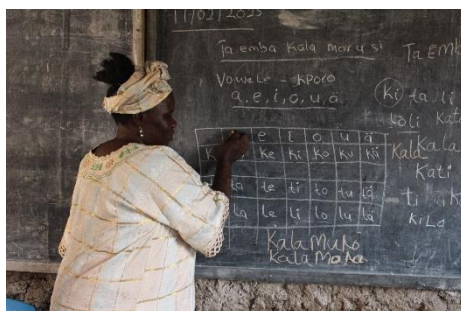 11/02/2025
Ta emba Kala marusi
Vowele - KPORO
a, e, i, o, u, ä
e i o u ä
K ke ki ko ku kä
ta te ti to tu tä
la le li lo lu lä
Kala Mukö
Kala Mata
Ta EMb
ki ta li
koli Kata
Kala Kala
Kati
ti
KiLo